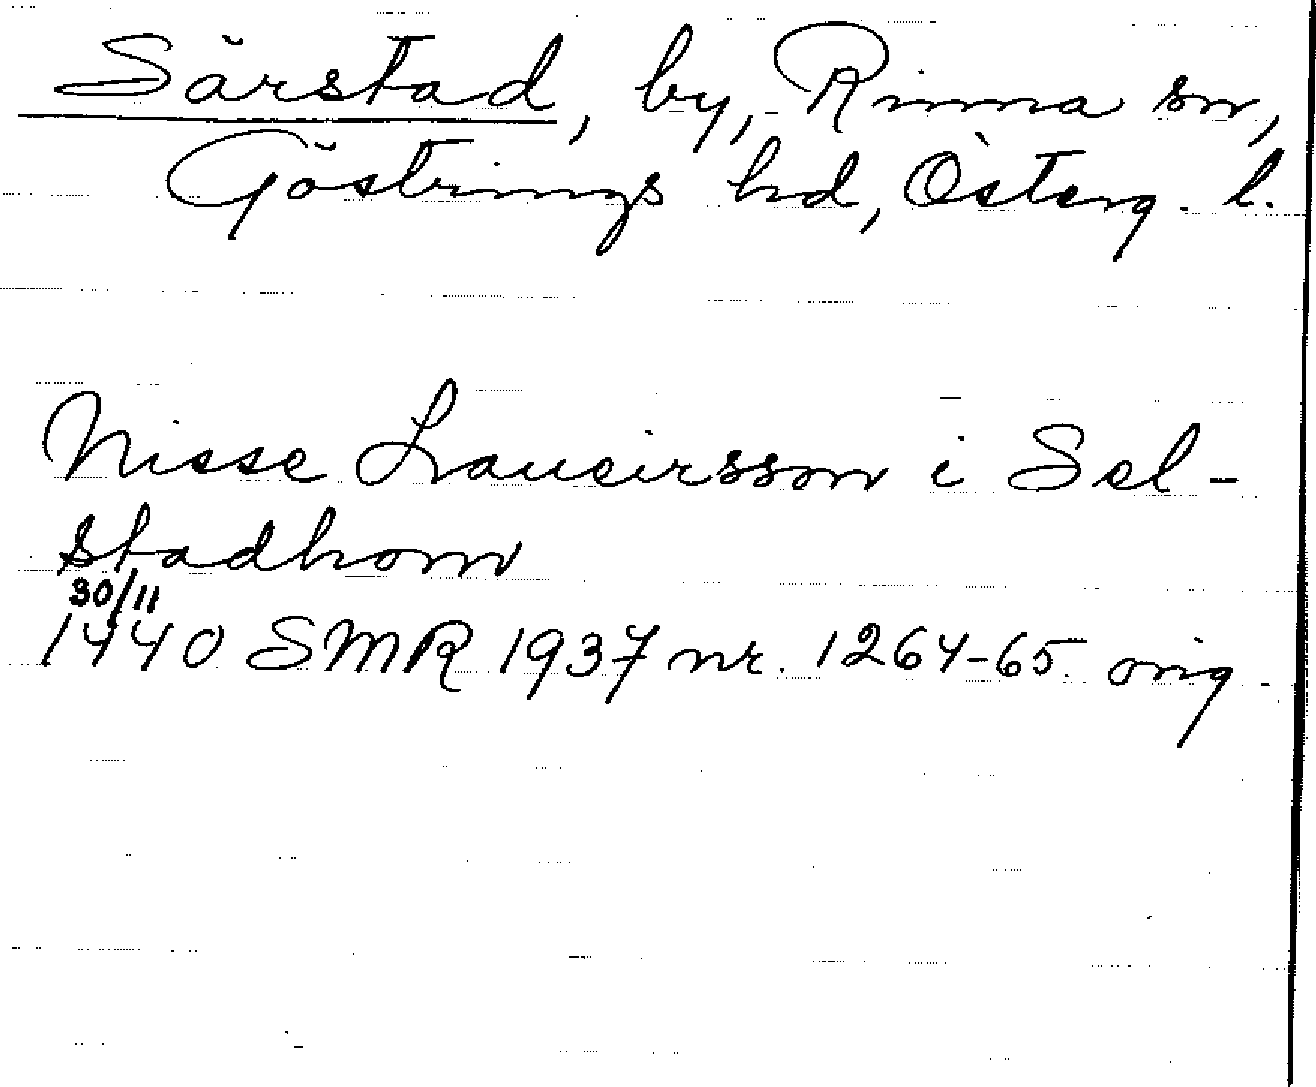 Särstad, by, Rinna sn,
Göstrings hd, Österg. l.
Nisse Laueirsson i Sel-
stadhom
30/11
1440 SMR 1937 nr. 1264-65. orig.